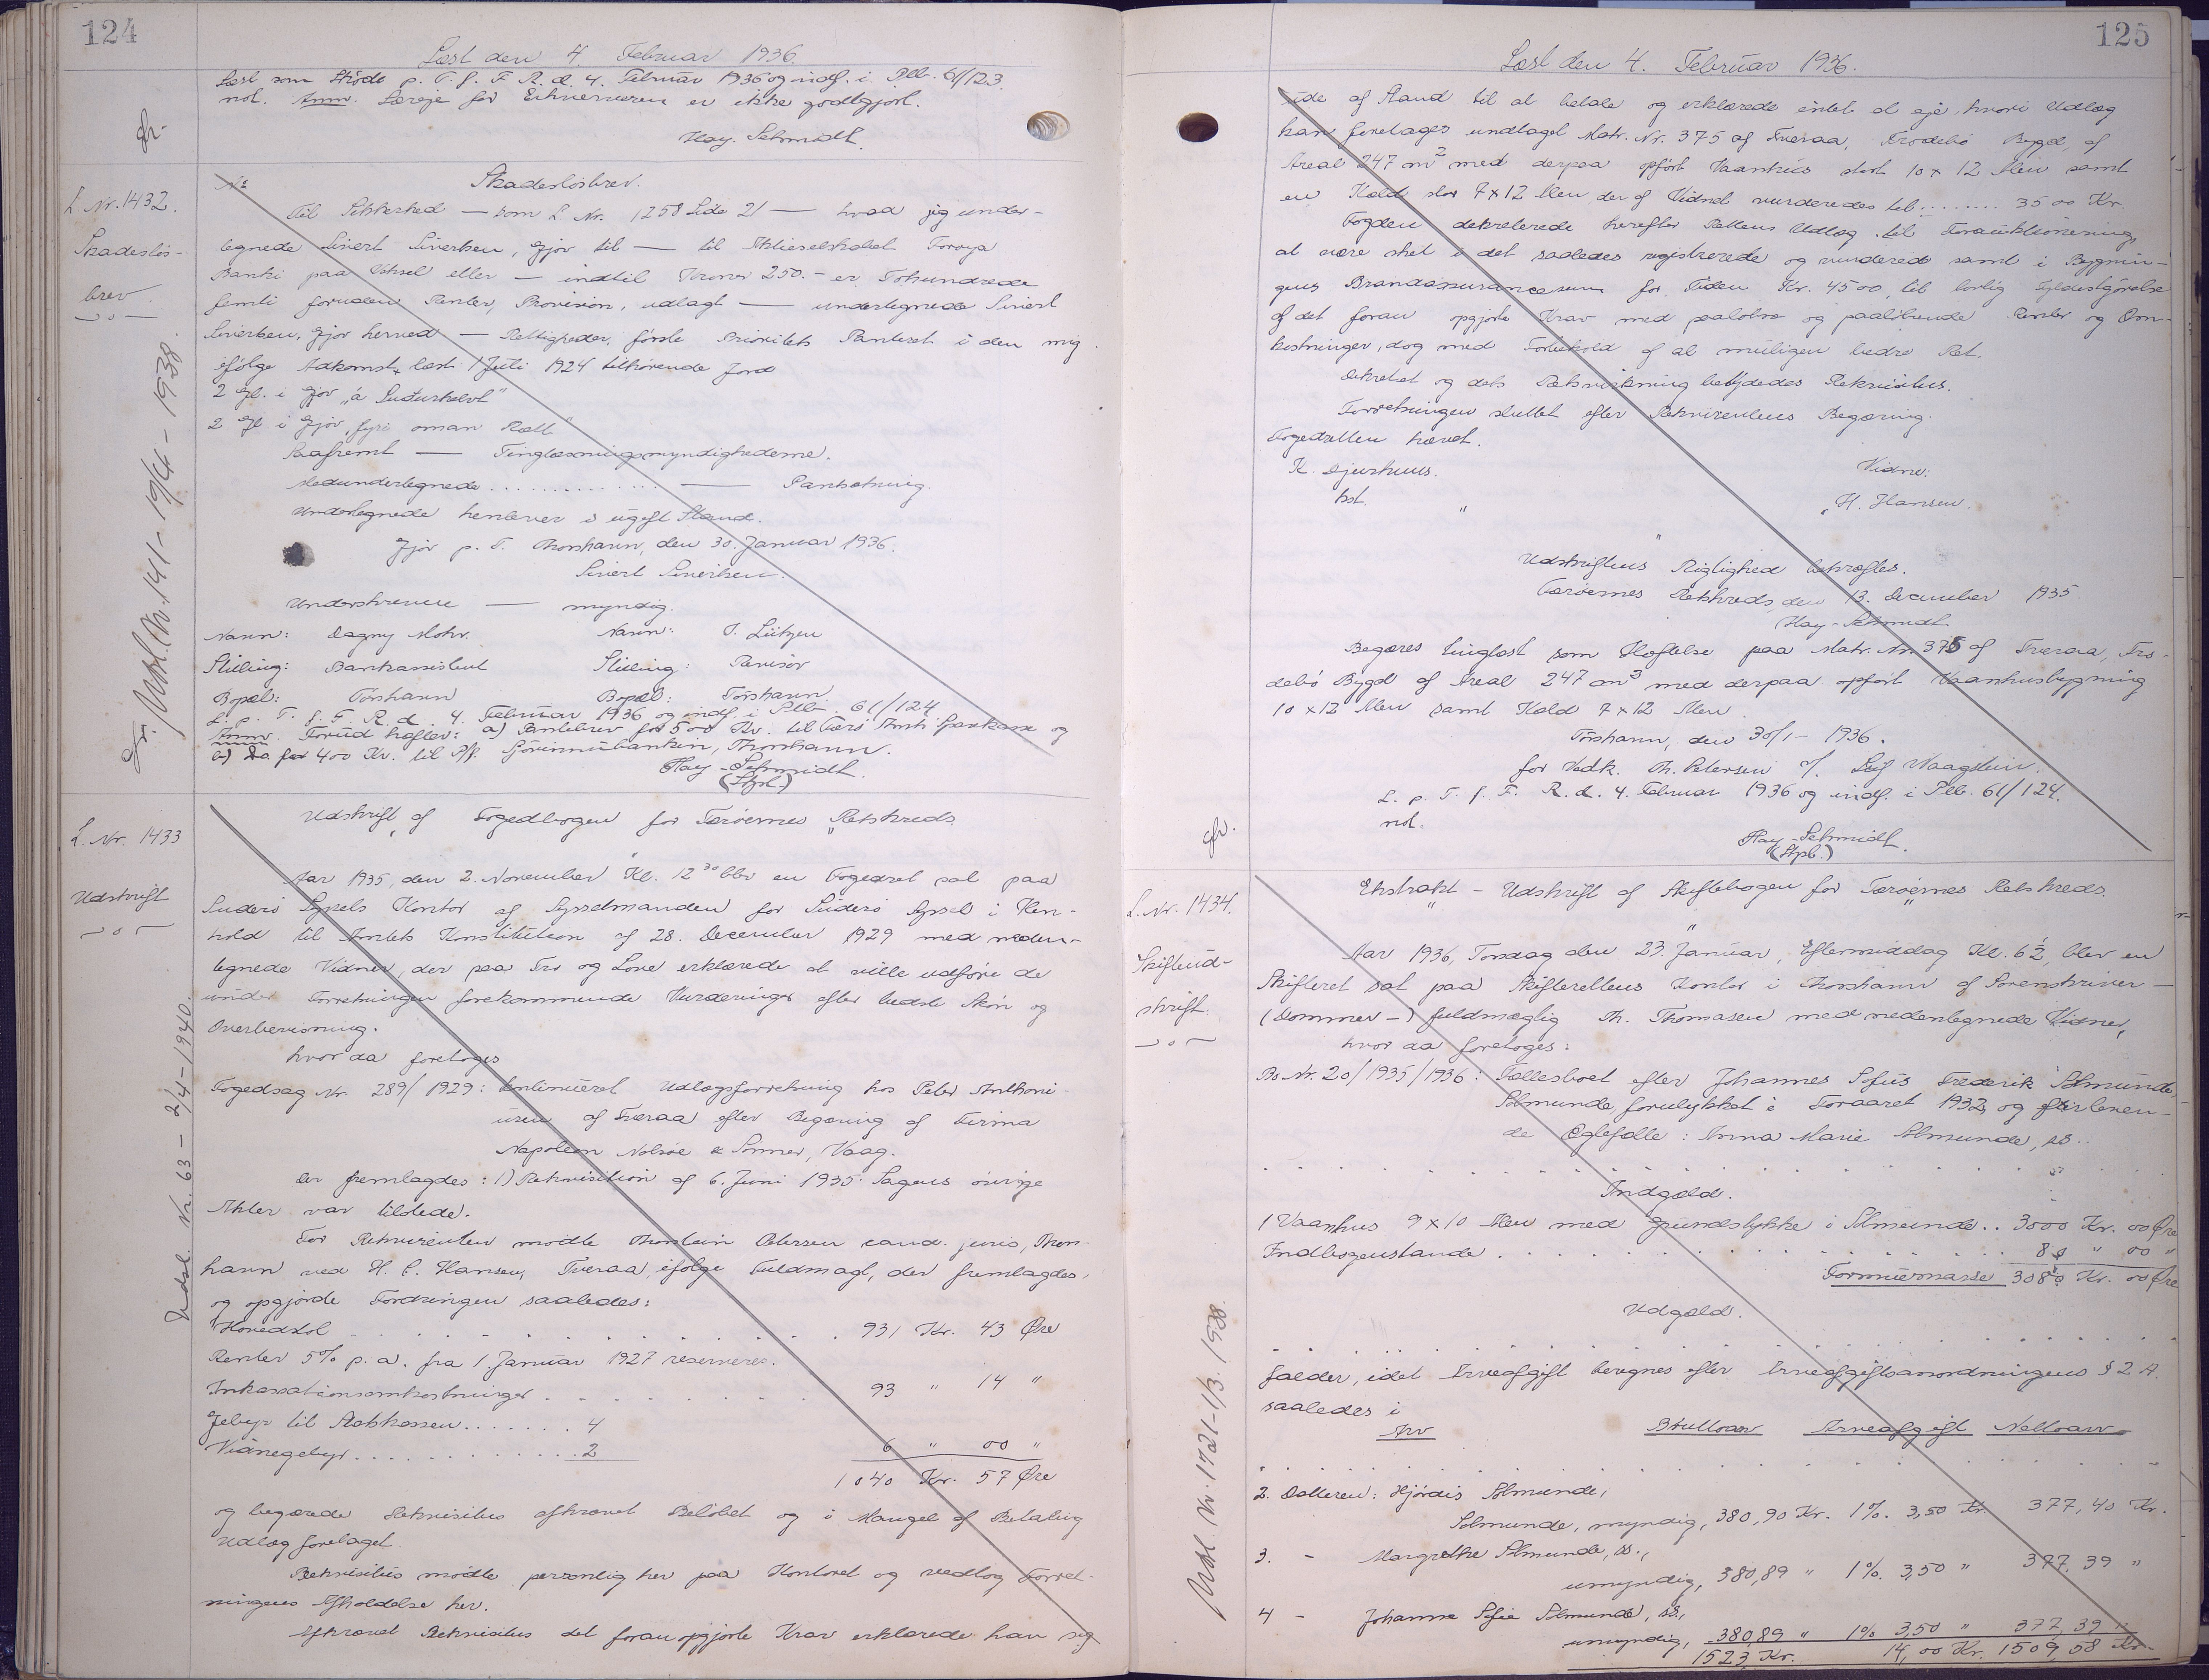 124
Læst den 4. Februar 1936.
Læst som Skøde p. T. f. F. R. d. 4. Februar 1936 og indf. i Pllb. 61/123
not. Anm. Særeje for Erhververen er ikke godtgjort.
Hay-Schmidt.
gr.
L. Nr. 1432.
Skadesløs-
brev.
Skadesløsbrev.
Til Sikkerhed — som L. Nr. 1258 Side 21 — hvad jeg under-
tegnede Sivert Sivertsen, Gjov til — til Aktieselskabet Føroya
Banki paa Veksel eller — indtil Kroner 250.- er Tohundrede
femti foruden Renter, Provision, udlagt — undertegnede Sivert
Sivertsen, Gjov herved — Rettigheder, første Prioritets Panteret i den mig
ifølge Adkomst, læst 1 Juli 1924 tilhørende Jord
2 Gl. i Gjov "á Suðurhelvt"
2 Gl. i Gjov "fyri oman Rætt"
Saafremt — Tinglæsningsmyndighederne.
Medundertegnede . . . . . . . . — Pantsætning.
Undertegnede henlever i ugift Stand.
Gjov p. T. Thorshavn, den 30. Januar 1936.
Sivert Sivertsen.
Underskrevne — myndig.
Navn: Dagny Mohr. Navn: P. Lützen
Stilling: Bankassistent Stilling: Revisor
Bopæl: Tórshavn Bopæl: Tórshavn
L. p. T. f. F. R. d. 4. Februar 1936 og indf. i Pllb. 61/124
Anm. Forud hæfter: a) Pantebrev for 500 Kr. til Færø Amts Sparkasse og
b) Do. for 400 Kr. til A/S. Sjóvinnubankin, Thorshavn.
Hay-Schmidt.
(Stpl.)
gr. Udsl. Nr. 141 - 19/4 - 1938.
L. Nr. 1433
Udskrift
Udskrift af Fogedbogen for Færøernes Retskreds.
Aar 1935, den 2. November Kl. 12 30 blev en Fogedret sat paa
Suderø Syssels Kontor af Sysselmanden for Suderø Syssel i Hen-
hold til Amtets Konstitution af 28. December 1929 med neden-
tegnede Vidner, der paa Tro og Love erklærede at ville udføre de
under Forretningen forekommende Vurderinger efter bedste Skøn og
Overbevisning.
hvor da foretoges
Fogedsag Nr. 289/1929: Kontinueret Udlægsforretning hos Peter Anthoni-
usen af Tveraa efter Begæring af Firma
Napoleon Nolsøe & Sønner, Vaag.
Der fremlagdes: 1) Rekvisition af 6. Juni 1935. Sagens øvrige
Akter var tilstede.
For Rekvirenten mødte Thorstein Petersen cand. juris, Thors-
havn ved H. C. Hansen, Tveraa, ifølge Fuldmagt, der fremlagdes,
og opgjorde Fordringen saaledes:
Hovedstol . . . . . . . . . . . . 931 Kr. 43 Øre
Renter 5% p. a. fra 1. Januar 1927 reserveres.
Inkassationsomkostninger . . . . . . . 93 " 14 "
Gebyr til Statskassen . . . . . . . 4
Vidnegebyr . . . . . . . . . . . 2 6 " 00 "
1040 Kr. 57 Øre
og begærede Rekvisitus afkrævet Beløbet og i Mangel af Betaling
Udlæg foretaget.
Rekvisitus mødte personlig her paa Kontoret og vedtog Forret-
ningens Afholdelse her.
Afkrævet Rekvisitus det foran opgjorte Krav erklærede han sig
Udsl. Nr. 63 - 2/4 - 1940.
125
Læst den 4. Februar 1936.
ude af Stand til at betale og erklærede intet at eje, hvori Udlæg
kan foretages undtaget Matr. Nr. 375 af Tveraa, Frodebø Bygd, af
Areal 247 m2 med derpaa opført Vaanhus stort 10 x 12 Alen samt
en Kæld stor 7 x 12 Alen, der af Vidnet vurderedes til . . . . . . . 3500 Kr.
Fogden dekreterede herefter Rettens Udlæg til Forauktionering,
at være sket i det saaledes registrerede og vurderede samt i Bygnin-
gens Brandassurancesum for Tiden Kr. 4500, til lovlig Fyldestgørelse
af det foran opgjorte Krav med paaløbne og paaløbende Renter og Om-
kostninger, dog med Forbehold af al muligen bedre Ret.
Dekretet og dets Retsvirkning betydedes Rekvisitus.
Forretningen sluttet efter Rekvirentens Begæring.
Fogedretten hævet.
K. Djurhuus. Vidne:
kst. " H. Hansen.
Udskriftens Rigtighed bekræftes.
Færøernes Retskreds, den 13. December 1935.
Hay-Schmidt.
Begæres tinglæst som Hæftelse paa Matr. Nr. 375 af Tveraa, Fro-
debø Bygd af Areal 247 m3 med derpaa opført Vaanhusbygning
10 x 12 Alen samt Kæld 7 x 12 Alen.
Tórshavn, den 30/1 - 1936.
for Vedk. Th. Petersen e/. Leif Waagstein.
L. p. T. f. F. R. d. 4. Februar 1936 og indf. i Pllb. 61/124.
not.
Hay-Schmidt.
(Stpl.)
gr.
L. Nr. 1434.
Skifteud-
skrift.
Ekstrakt - Udskrift af Skiftebogen for Færøernes Retskreds.
Aar 1936, Torsdag den 23. Januar, Eftermiddag Kl. 6½, blev en
Skifteret sat paa Skifterettens Kontor i Thorshavn af Sorenskriver-
(Dommer-) fuldmægtig Th. Thomasen med nedentegnede Vidner,
hvor da foretoges:
Bo Nr. 20/1935/1936: Fællesboet efter Johannes Sofus Frederik Sølmunde,
Sølmunde, forulykket i Foraaret 1932, og efterleven-
de Ægtefælle: Anna Marie Sølmunde, ss.
Indgæld.
1 Vaanhus 9 x 10 Alen med Grundstykke i Sølmunde . . 3000 Kr. 00 Øre
Indbogenstande . . . . . . . . . . . . 80 " 00 "
Formuemasse 3080 Kr. 00 Øre
Udgæld.
falder, idet Arveafgift beregnes efter Arveafgiftsanordningens § 2 A.
saaledes i
Arv Bruttoarv Arveafgift Nettoarv
2. Datteren: Hjørdis Sølmunde,
Sølmunde, myndig, 380,90 Kr. 1%. 3,50 Kr. 377,40 Kr.
3. - Margrethe Sølmunde, ss.,
umyndig, 380,89 " 1%. 3,50 " 377,39 "
4 - Johanna Sofie Sølmunde, ss.,
umyndig, 380,89 " 1% 3,50 " 377,39 "
1523 Kr. 14,00 Kr. 1509,58 Kr.
Udsl. Nr. 1721-1/3. 1938.